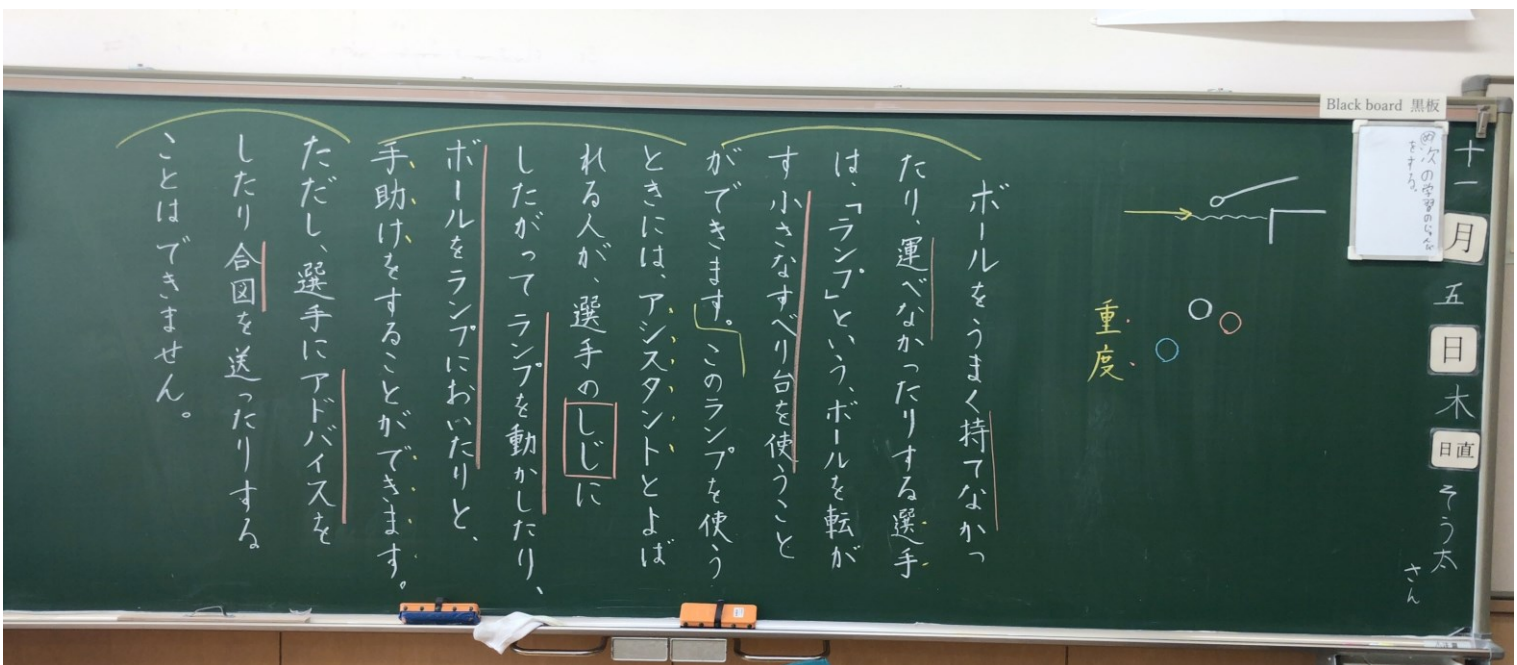 Black board 黒板
十一月五日木
日直
そう太さん
め次の学習の
をする。
重度
ボールをうまく持てなかっ
たり、運べなかったりする選手
は、「ランプ」という、ボールを転が
す小さなすべり台を使うこと
ができます。このランプを使う
ときには、アシスタントとよば
れる人が、選手のしじに
したがってランプを動かしたり、
ボールをランプにおいたりと、
手助けをすることができます。
ただし、選手にアドバイスを
したり合図を送ったりする
ことはできません。